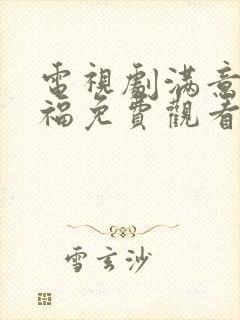 電視劇滿意
福免費觀看
雪玄沙